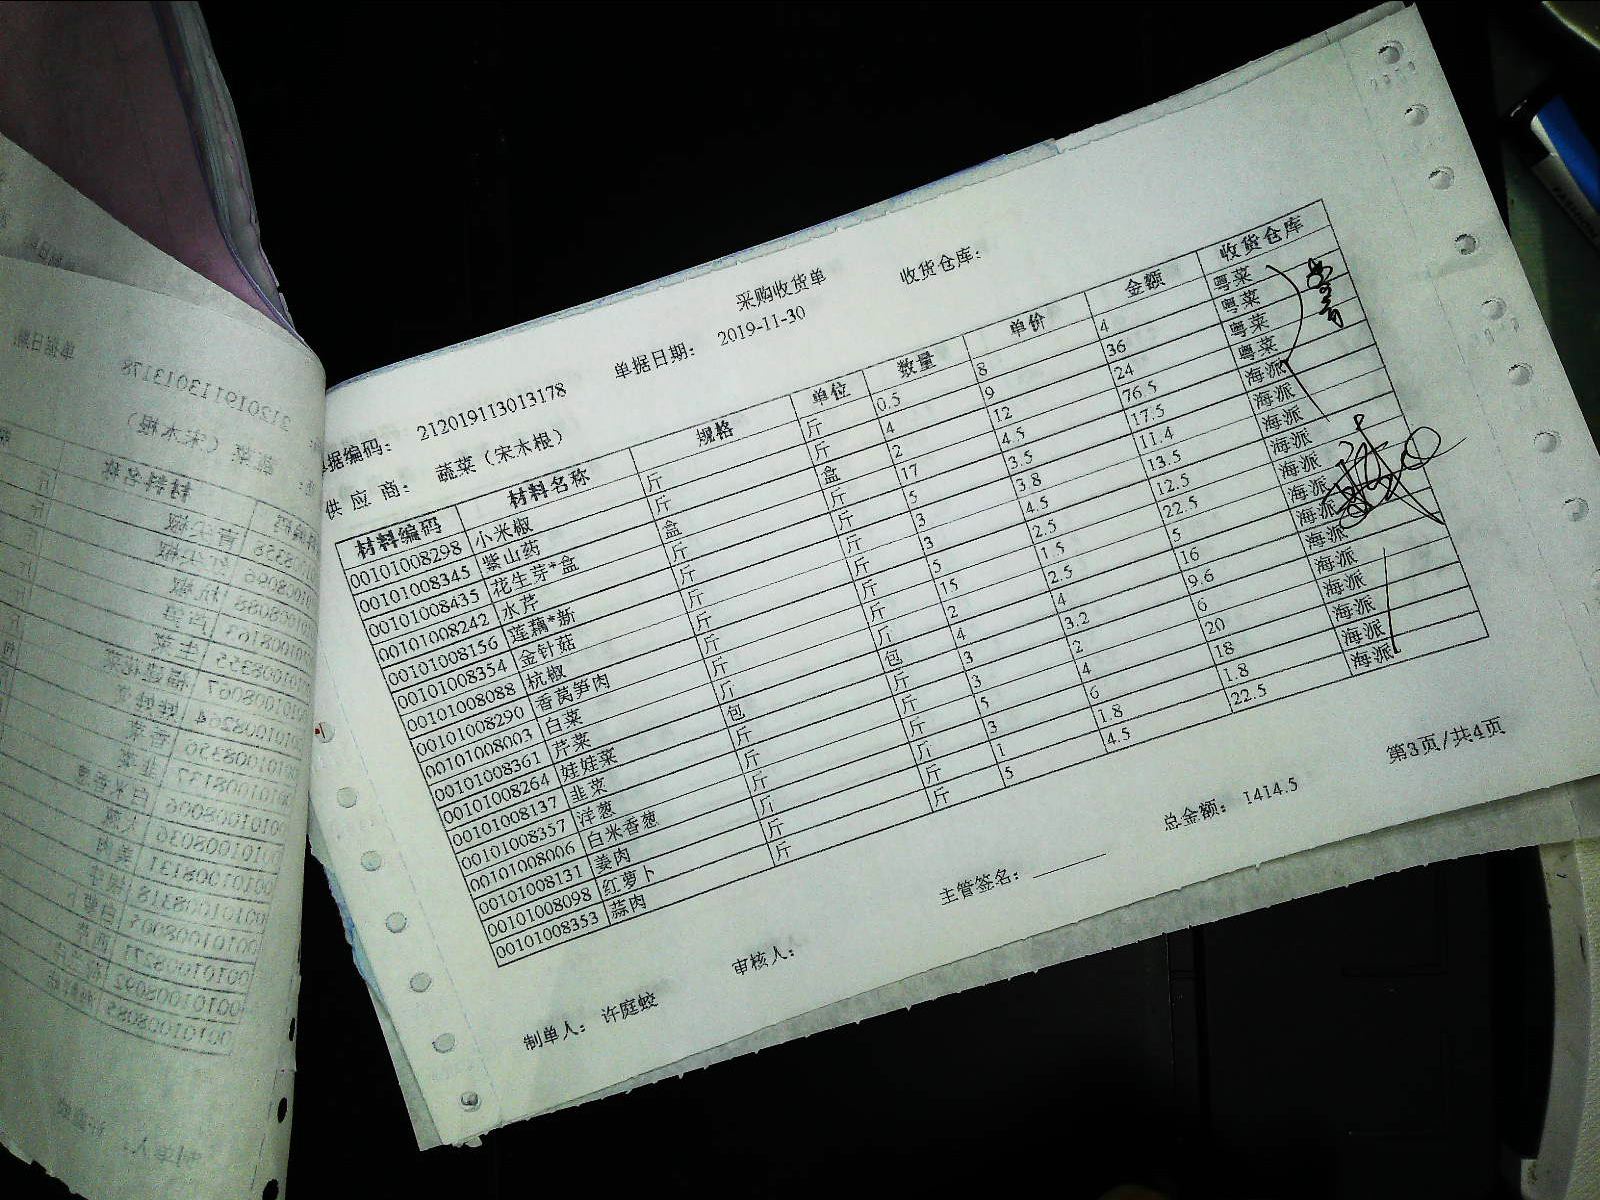 采购收货单
收货仓库:
单据日期: 2019-11-30
据编码: 212019113013178
供应商: 蔬菜(宋木根)
材料编码 材料名称 规格 单位 数量 单价 金额 收货仓库
00101008298 小米椒 斤 斤 0.5 8 4 粤菜
00101008345 紫山药 斤 斤 4 9 36 粤菜
00101008435 花生芽*盒 盒 盒 2 12 24 粤菜
00101008242 水芹 斤 斤 17 4.5 76.5 粤菜
00101008156 莲藕*新 斤 斤 5 3.5 17.5 海派
00101008354 金针菇 斤 斤 3 3.8 11.4 海派
00101008088 杭椒 斤 斤 3 4.5 13.5 海派
00101008290 香莴笋肉 斤 斤 5 2.5 12.5 海派
00101008003 白菜 斤 斤 15 1.5 22.5 海派
00101008361 芹菜 斤 斤 2 2.5 5 海派
00101008264 娃娃菜 包 包 4 4 16 海派
00101008137 韭菜 斤 斤 3 3.2 9.6 海派
00101008357 洋葱 斤 斤 3 2 6 海派
00101008006 白米香葱 斤 斤 5 4 20 海派
00101008131 姜肉 斤 斤 3 6 18 海派
00101008098 红萝卜 斤 斤 1 1.8 1.8 海派
00101008353 蒜肉 斤 斤 5 4.5 22.5 海派
第3页/共4页
总金额: 1414.5
主管签名:
审核人:
制单人: 许庭蛟